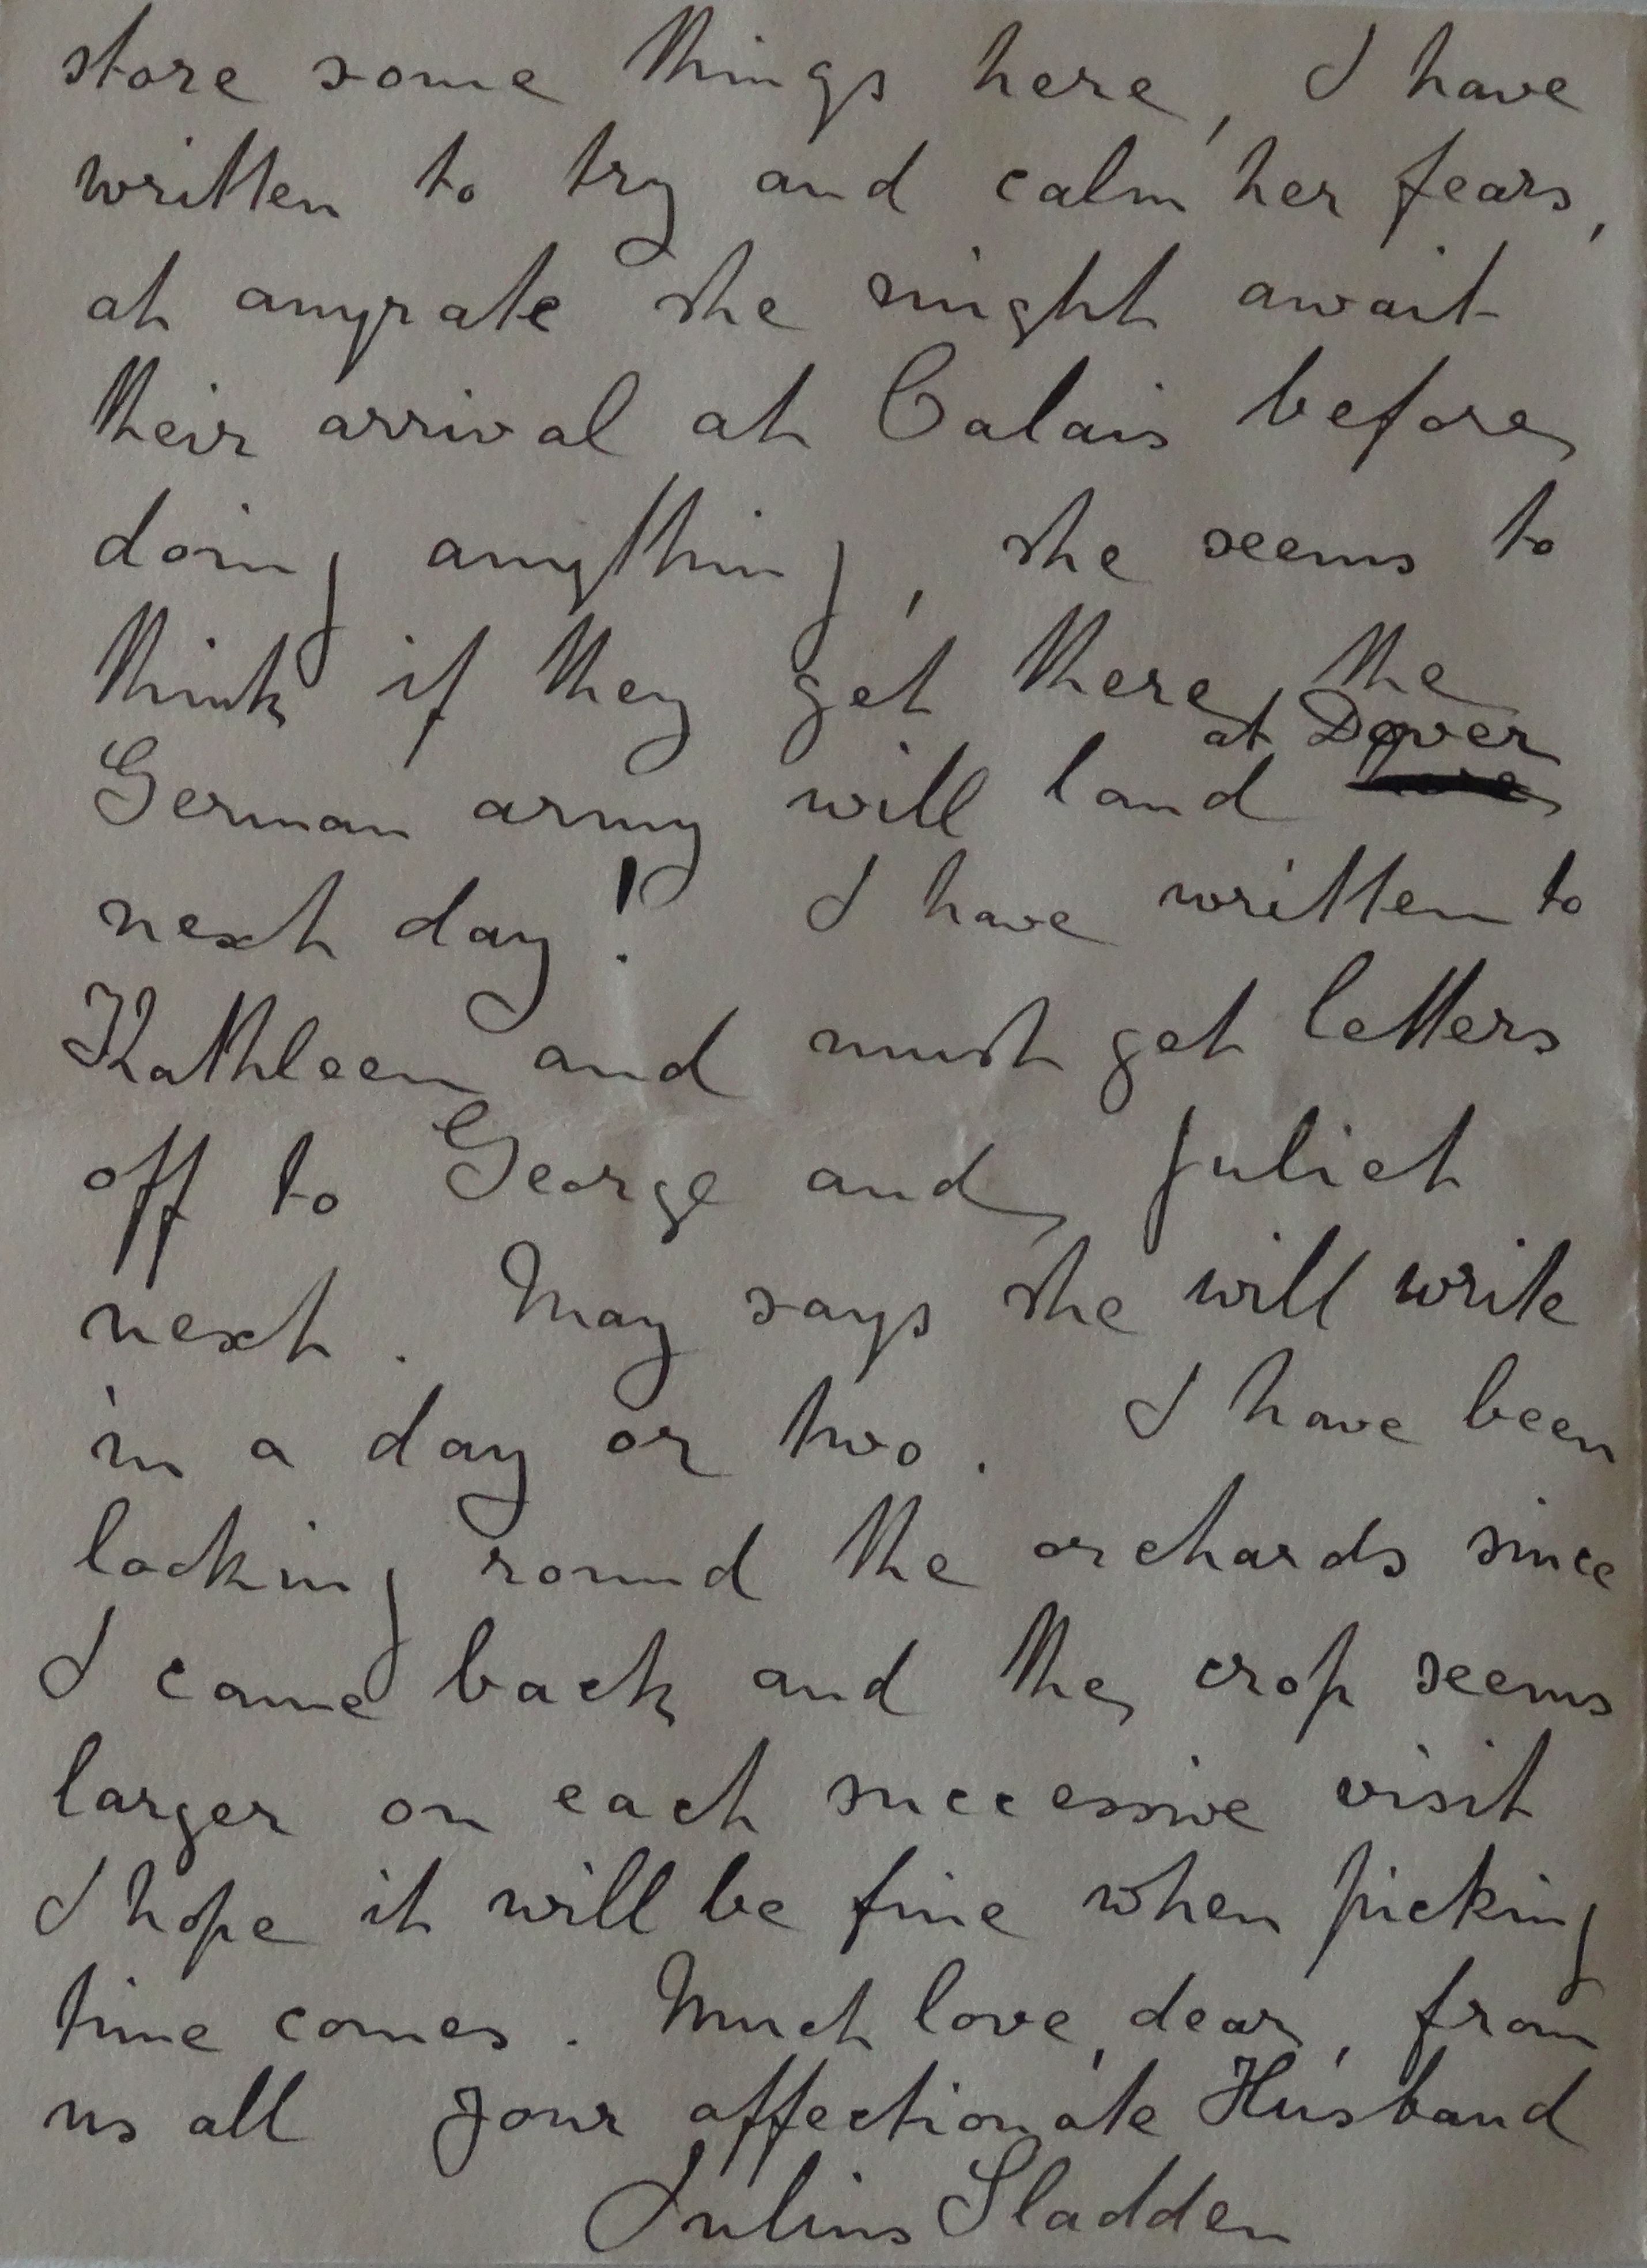 store some things here, I have
written to try and calm her fears,
at anyrate she might await
their arrival at Calais before
doing anything, she seems to
think if they get there the
at Dover
German army will land
next day! I have written to
Kathleen and must get letters
off to George and Juliet
next. May says she will write
in a day or two. I have been
looking round the orchards since
I came back and the crop seems
larger on each successive visit
I hope it will be fine when picking
time comes. Much love, dear, from
us all your affectionate Husband
Julius Sladden